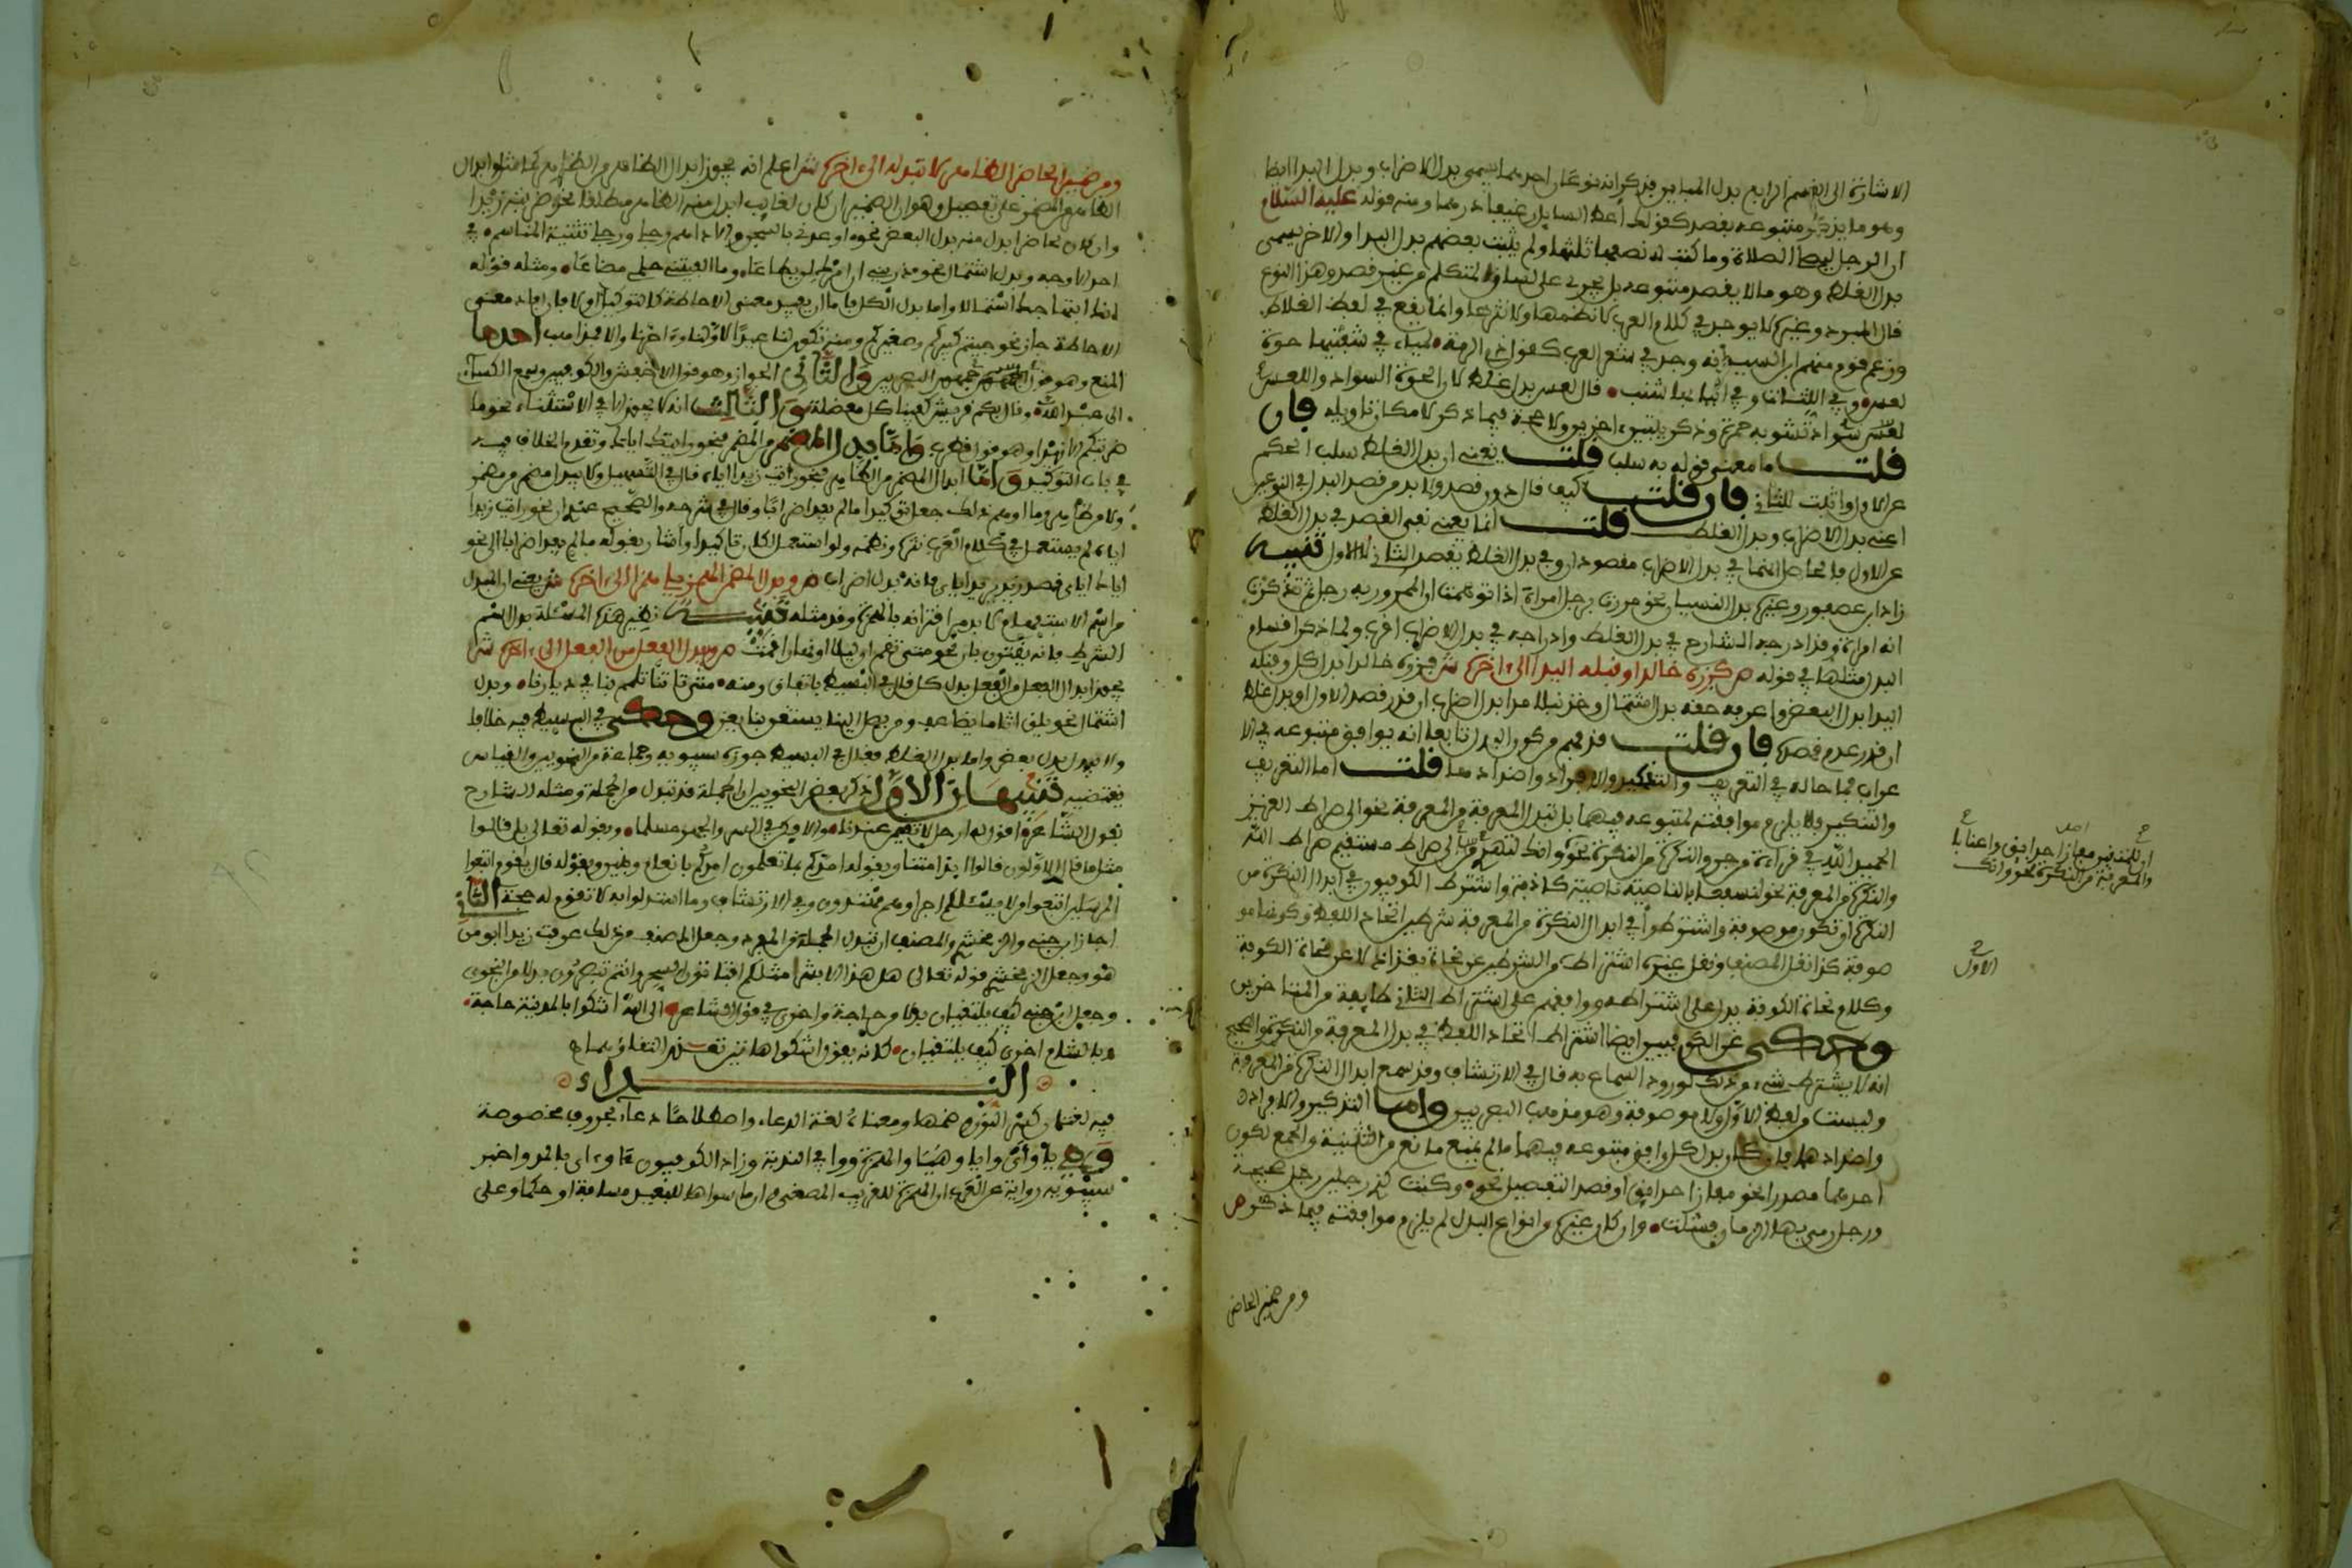 الاشارة الى القسم الرابع بدل المباين فذكر انه نوعان احدهما يسمى بدل الاضراب وبدل البدا ايضا
وهو ما يذكر متبوعه بقصد كقولك اعط السايل رغيفا درهما ومنه قوله عليه السلام
ان الرجل ليصلي الصلاة وما كتب له نصفها ثلثها ولم يثبت بعضهم بدل البدا والاخر يسمى
بدل الغلط وهو ما لا يقصد متبوعه بل يجري على لسان المتكلم من غير قصد وهذا النوع
قال المبرد وغيره لا يوجد في كلام العرب لا نظمها ولا نثرها وانما يقع في لفظ الغلاط
وزعم قوم منهم ابن السيد انه وجد في شعر العرب كقول ذي الرمة لمياء في شفتيها حوة
لعس وفي اللثات وفي انيابها شنب قال لعس بدل غلط لان الحوة السواد واللعس
سواد تشوبه حمرة وذكر بيتين اخرين ولا حجة فيما ذكر لامكان تاويله فان
قلت ما معنى قوله به سلب قلت يعني ان بدل الغلط سلب الحكم
عن الاول واثبت للثاني فان قلت كيف قال دون قصد ولا بد من قصد البدل في النوعين
اعني بدل الاضراب وبدل الغلط قلت انما يعني نفي القصد في بدل الغلط
عن الاول فالحاصل انهما في بدل الاضراب مقصودان وفي بدل الغلط يقصد الثاني لا الاول تنبيه
زاد ابن عصفور وغيره بدل النسيان نحو مررت برجل امراة اذا توهمت ان الممرور به رجل ثم تذكرت
انه امراة وقد ادرجه الشارح في بدل الغلط وادراجه في بدل الاضراب اقرب ولما ذكر اقسام
البدل مثلها في قوله ص كزره خالدا وقبله اليدا الى اخره ش فزره خالدا بدل كل وقبله
اليدا بدل البعض واعرفه حقه بدل اشتمال وخذ نبلا مدا بدل اضراب ان قدر قصد الاول او بدل غلط
ان قدر عدم قصده فان قلت قد فهم من كون البدل تابعا انه يوافق متبوعه في الا
عراب فما حاله في التعريف والتنكير والافراد واضدادها قلت اما التعريف
والتنكير فلا يلزم موافقته لمتبوعه فيهما بل تبدل المعرفة من المعرفة نحو الى صراط العزيز
الحميد الله في قراءة من جر والنكرة من النكرة نحو وانك لتهدي الى صراط مستقيم صراط الله
والنكرة من المعرفة نحو لنسفعا بالناصية ناصية كاذبة واشترط الكوفيون في ابدال النكرة من
النكرة ان تكون موصوفة واشترطوا في ابدال النكرة من المعرفة شرطين اتحاد اللفظ وكونها مو
صوفة كذا نقل المصنف ونقل غيره اشتراط الشرطين عن نحاة بغداد لا عن نحاة الكوفة
وكلام نحاة الكوفة يدل على اشتراطه ووافقهم على اشتراط الثاني طايفة من المتاخرين
وحكى عن الكوفيين ايضا اشتراط اتحاد اللفظ في بدل المعرفة من النكرة والصحيح
انه لا يشترط شيء من ذلك لورود السماع به قال في الارتشاف وقد سمع ابدال النكرة من المعرفة
وليست من لفظ الاول ولا موصوفة وهو مذهب البصريين واما التذكير والافراد
واضدادهما فان كان بدل كل وافق متبوعه فيهما ما لم يمنع مانع من التثنية والجمع لكون
احدهما مصدرا نحو مفازا حدايق او قصد التفصيل نحو وكنت كذي رجلين رجل صحيحة
ورجل رمى فيها الزمان فشلت وان كان غيره من انواع البدل لم يلزم موافقته فيما ذكر ص
ومن ضمير الحاضر
ان للمتقين مفازا حدايق واعنابا
والمعرفة من النكرة نحو وانك
الاول
ومن ضمير الحاضر الظاهر لا تبدله الى اخره ش اعلم انه يجوز ابدال الظاهر من الظاهر كما مثل وابدال
الظاهر من المضمر على تفصيل وهو ان الضمير ان كان لغايب ابدل منه الظاهر مطلقا نحو ضربته زيدا
وان كان لحاضر ابدل منه بدل البعض نحو اوعدني بالسجن والاداهم رجلي ورجلي شثنة المناسم في
احد الاوجه وبدل اشتمال نحو ذريني ان امرك لن يطاعا وما الفيتني حلمي مضاعا ومثله قوله
انك ابتهاجك استمالا واما بدل الكل فاما ان يفيد معنى الاحاطة كالتوكيد او لا فان افاد معنى
الاحاطة جاز نحو جيتم كبيركم وصغيركم ومنه تكون لنا عيدا لاولنا واخرنا والا فمذاهب احدها
المنع وهو مذهب جمهور البصريين والثاني الجواز وهو قول الاخفش والكوفيين وسمع الكساي
الى عبد الله وقال بكم قريش كفينا كل معضلة والثالث انه لا يجوز الا في الاستثناء نحو ما
ضربتكم الا زيدا وهو قول قطرب واما بدل المضمر من المضمر فنحو رايتك اياك وتقدم الخلاف فيه
في باب التوكيد واما ابدال المضمر من الظاهر فنحو رايت زيدا اياه قال في التسهيل ولا يبدل مضمر من مضمر
ولا من ظاهر وما اوهم ذلك جعل توكيدا ما لم يفد اضرابا وقال في شرحه والصحيح عندي ان نحو رايت زيدا
اياه لم يستعمل في كلام العرب نثره ونظمه ولو استعمل لكان تاكيدا واشار بقوله ما لم يفد اضرابا الى نحو
اياك اياي قصد زيد بل اياي فانه بدل اضراب ص وبدل المضمن الهمز يلي همزا الى اخره ش يعني ان المبدل
من اسم الاستفهام لا بد من اقترانه بالهمزة وقد مثله تنبيه نظير هذه المسئلة بدل اسم
الشرط فانه يقترن بان نحو متى تقم ان ليلا او نهارا اقمت ص ويبدل الفعل من الفعل الى اخره ش
يجوز ابدال الفعل من الفعل بدل كل قال في البسيط باتفاق ومنه متى تاتنا تلمم بنا في ديارنا وبدل
اشتمال نحو يلق اثاما يضاعف ومن يصل الينا يستعن بنا يعن وحكى في البسيط فيه خلافا
ولا يبدل بدل بعض واما بدل الغلط فقال في البسيط جوزه سيبويه وجماعة من النحويين والقياس
يقتضيه تنبيهان الاول ذكر بعض النحويين ان الجملة قد تبدل من الجملة ومثله الشارح
بقول الشاعر اقول له ارحل لا تقيمن عندنا والا فكن في السر والجهر مسلما وبقوله تعالى بل قالوا
مثل ما قال الاولون قالوا ايذا متنا وبقوله امدكم بما تعلمون امدكم بانعام وبنين وبقوله قال يا قوم اتبعوا
المرسلين اتبعوا من لا يسئلكم اجرا وهم مهتدون وفي الارتشاف وما استدلوا به لا تقوم له حجة الثاني
اجاز ابن جني والزمخشري والمصنف ان تبدل الجملة من المفرد وجعل المصنف من ذلك عرفت زيدا ابو من
هو وجعل الزمخشري قوله تعالى هل هذا الا بشر مثلكم افتاتون السحر وانتم تبصرون بدلا من النجوى
وجعل ابن جني كيف يلتقيان بدلا من حاجة واخرى في قول الشاعر الى الله اشكوا بالمدينة حاجة
وبالشام اخرى كيف يلتقيان كانه يقول اشكوا هاتين تعذر التقاؤهما
النداء
فيه لغتان كسر النون وضمها ومعناه لغة الدعاء واصطلاحا دعاء بحروف مخصوصة
وهي يا واي وايا وهيا والهمزة ووا في الندبة وزاد الكوفيون ءا وءاي بالمد واخبر
سيبويه رواية عن العرب ان الهمزة للقريب المصغي وان ما سواها للبعيد مسافة او حكما وعلى